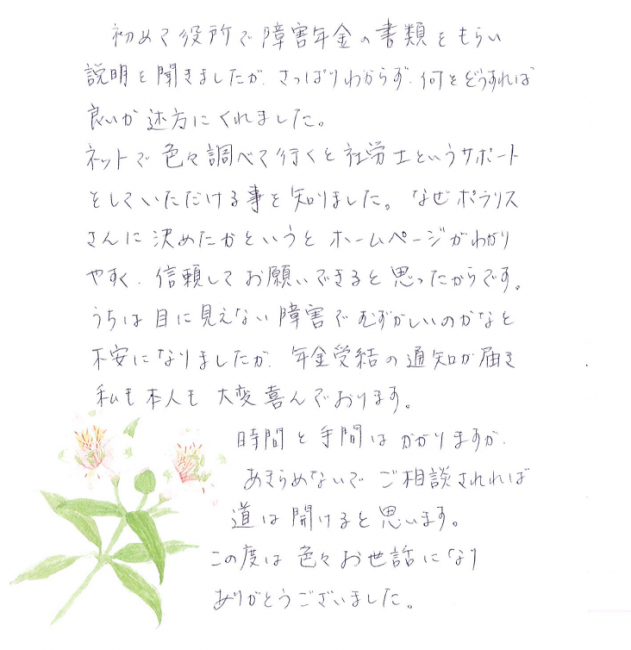 初めて役所で障害年金の書類をもらい
説明を聞きましたが、さっぱりわからず、何をどうすれば
良いか途方にくれました。
ネットで色々調べて行くと社労士というサポート
をしていただける事を知りました。なぜポラリス
さんに決めたかというとホームページがわかり
やすく、信頼してお願いできると思ったからです。
うちは目に見えない障害でむずかしいのかなと
不安になりましたが、年金受給の通知が届き
私も本人も大変喜んでおります。
時間と手間はかかりますが、
あきらめないでご相談されれば
道は開けると思います。
この度は色々お世話になり
ありがとうございました。